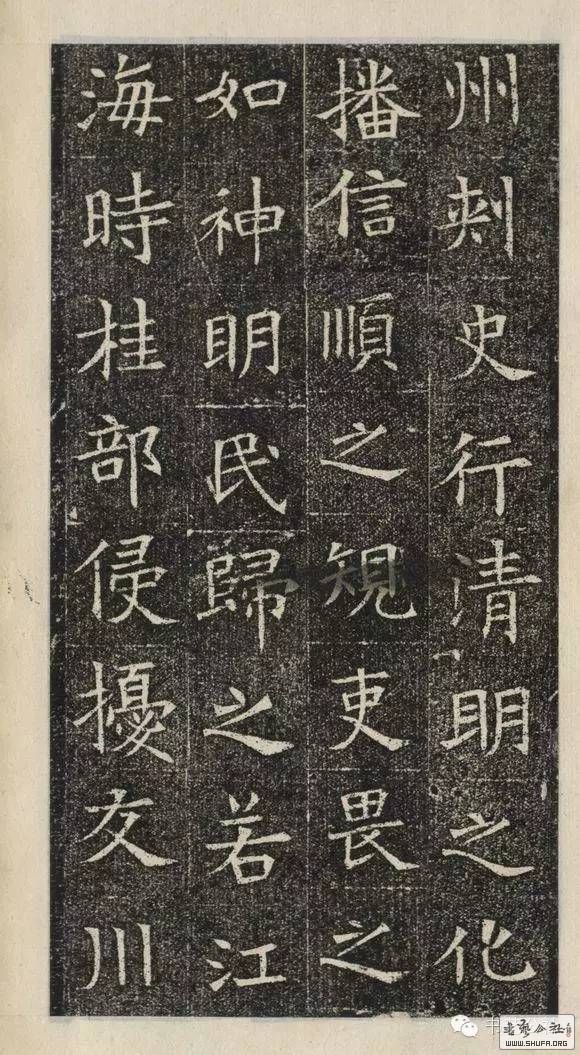 州刾史行清明之化
播信順之䂓吏畏之
如神明民歸之若江
海時桂部侵擾友川
书艺公社
WWW.SHUFA.ORG